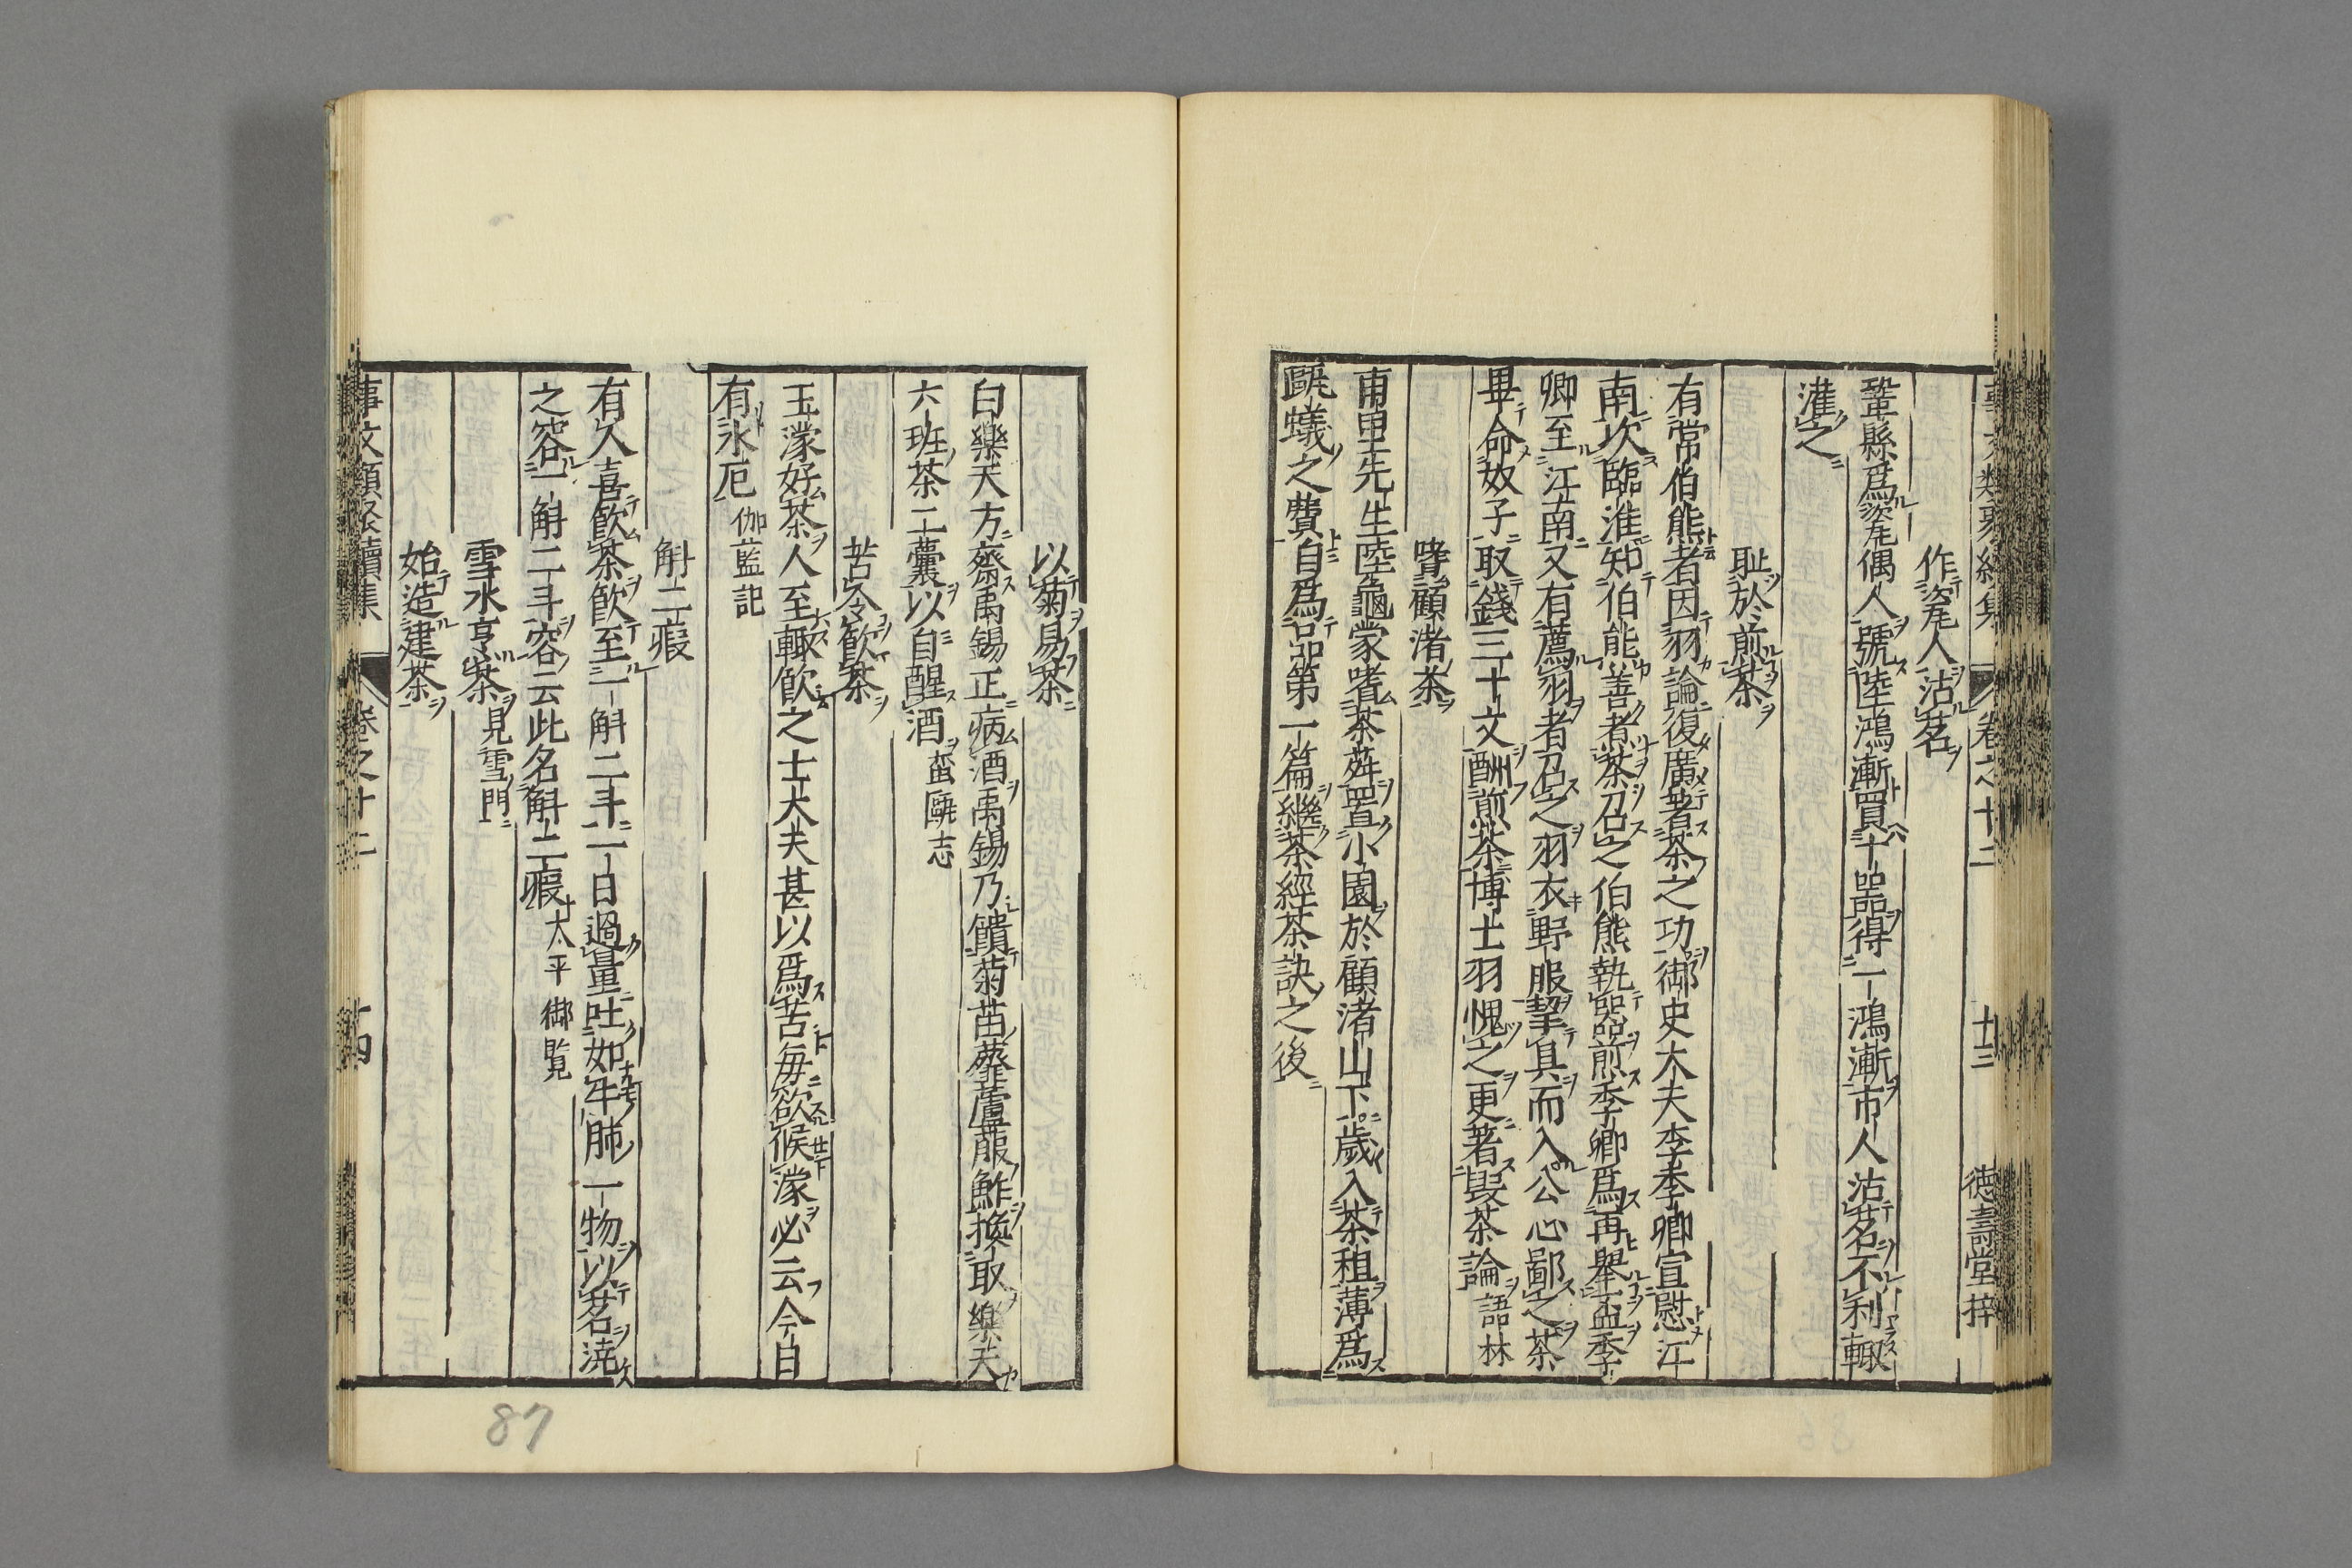 事文類聚續集 卷之十二 十三 德壽堂梓
作瓷人沽茗
鞏縣爲瓷偶人號陸鴻漸買十器得一鴻漸市人沽茗不利輙
灌之
耻於煎茶
有常伯熊者因羽論復廣著茶之功御史大夫李季卿宣慰江
南次臨淮知伯能善煮茶召之伯熊執器煎季卿爲再舉盃季
卿至江南又有薦羽者召之羽衣野服挈具而入公心鄙之茶
畢命奴子取錢三十文酬煎茶博士羽愧之更著毀茶論 語林
嗜顧渚茶
甫里先生陸龜蒙嗜茶荈置小園於顧渚山下歲入茶租薄爲
甌蟻之費自爲品第一篇繼茶經茶訣之後
以菊易茶
白樂天方齋禹錫正病酒禹錫乃饋菊苗虀蘆菔鮓換取樂天
六班茶二囊以自醒酒 蛮甌志
苦冷飲茶
王濛好茶人至輙飲之士大夫甚以爲苦每欲候濛必云今日
有水厄 伽藍記
斛二瘕
有人喜飲茶飲至一斛二斗一日過量吐如牛肺一物以茗澆
之容一斛二斗容云此名斛二瘕 太平御覧
雪水烹茶 見雪門
始造建茶
事文類聚續集 卷之十二 十四
87